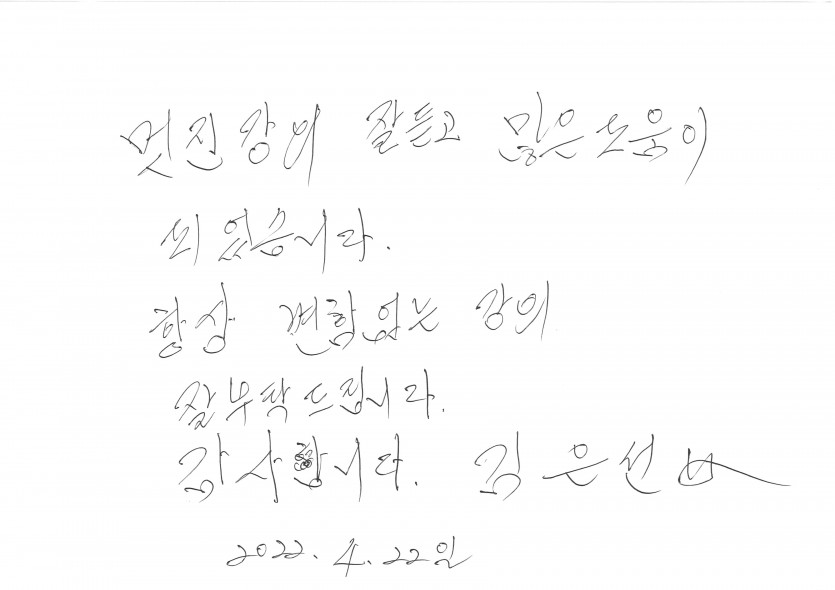 멋진강의 잘듣고 많은도움이
되었습니다.
항상 변함없는 강의
잘부탁드립니다.
감사합니다. 김은선
2022. 4. 22일